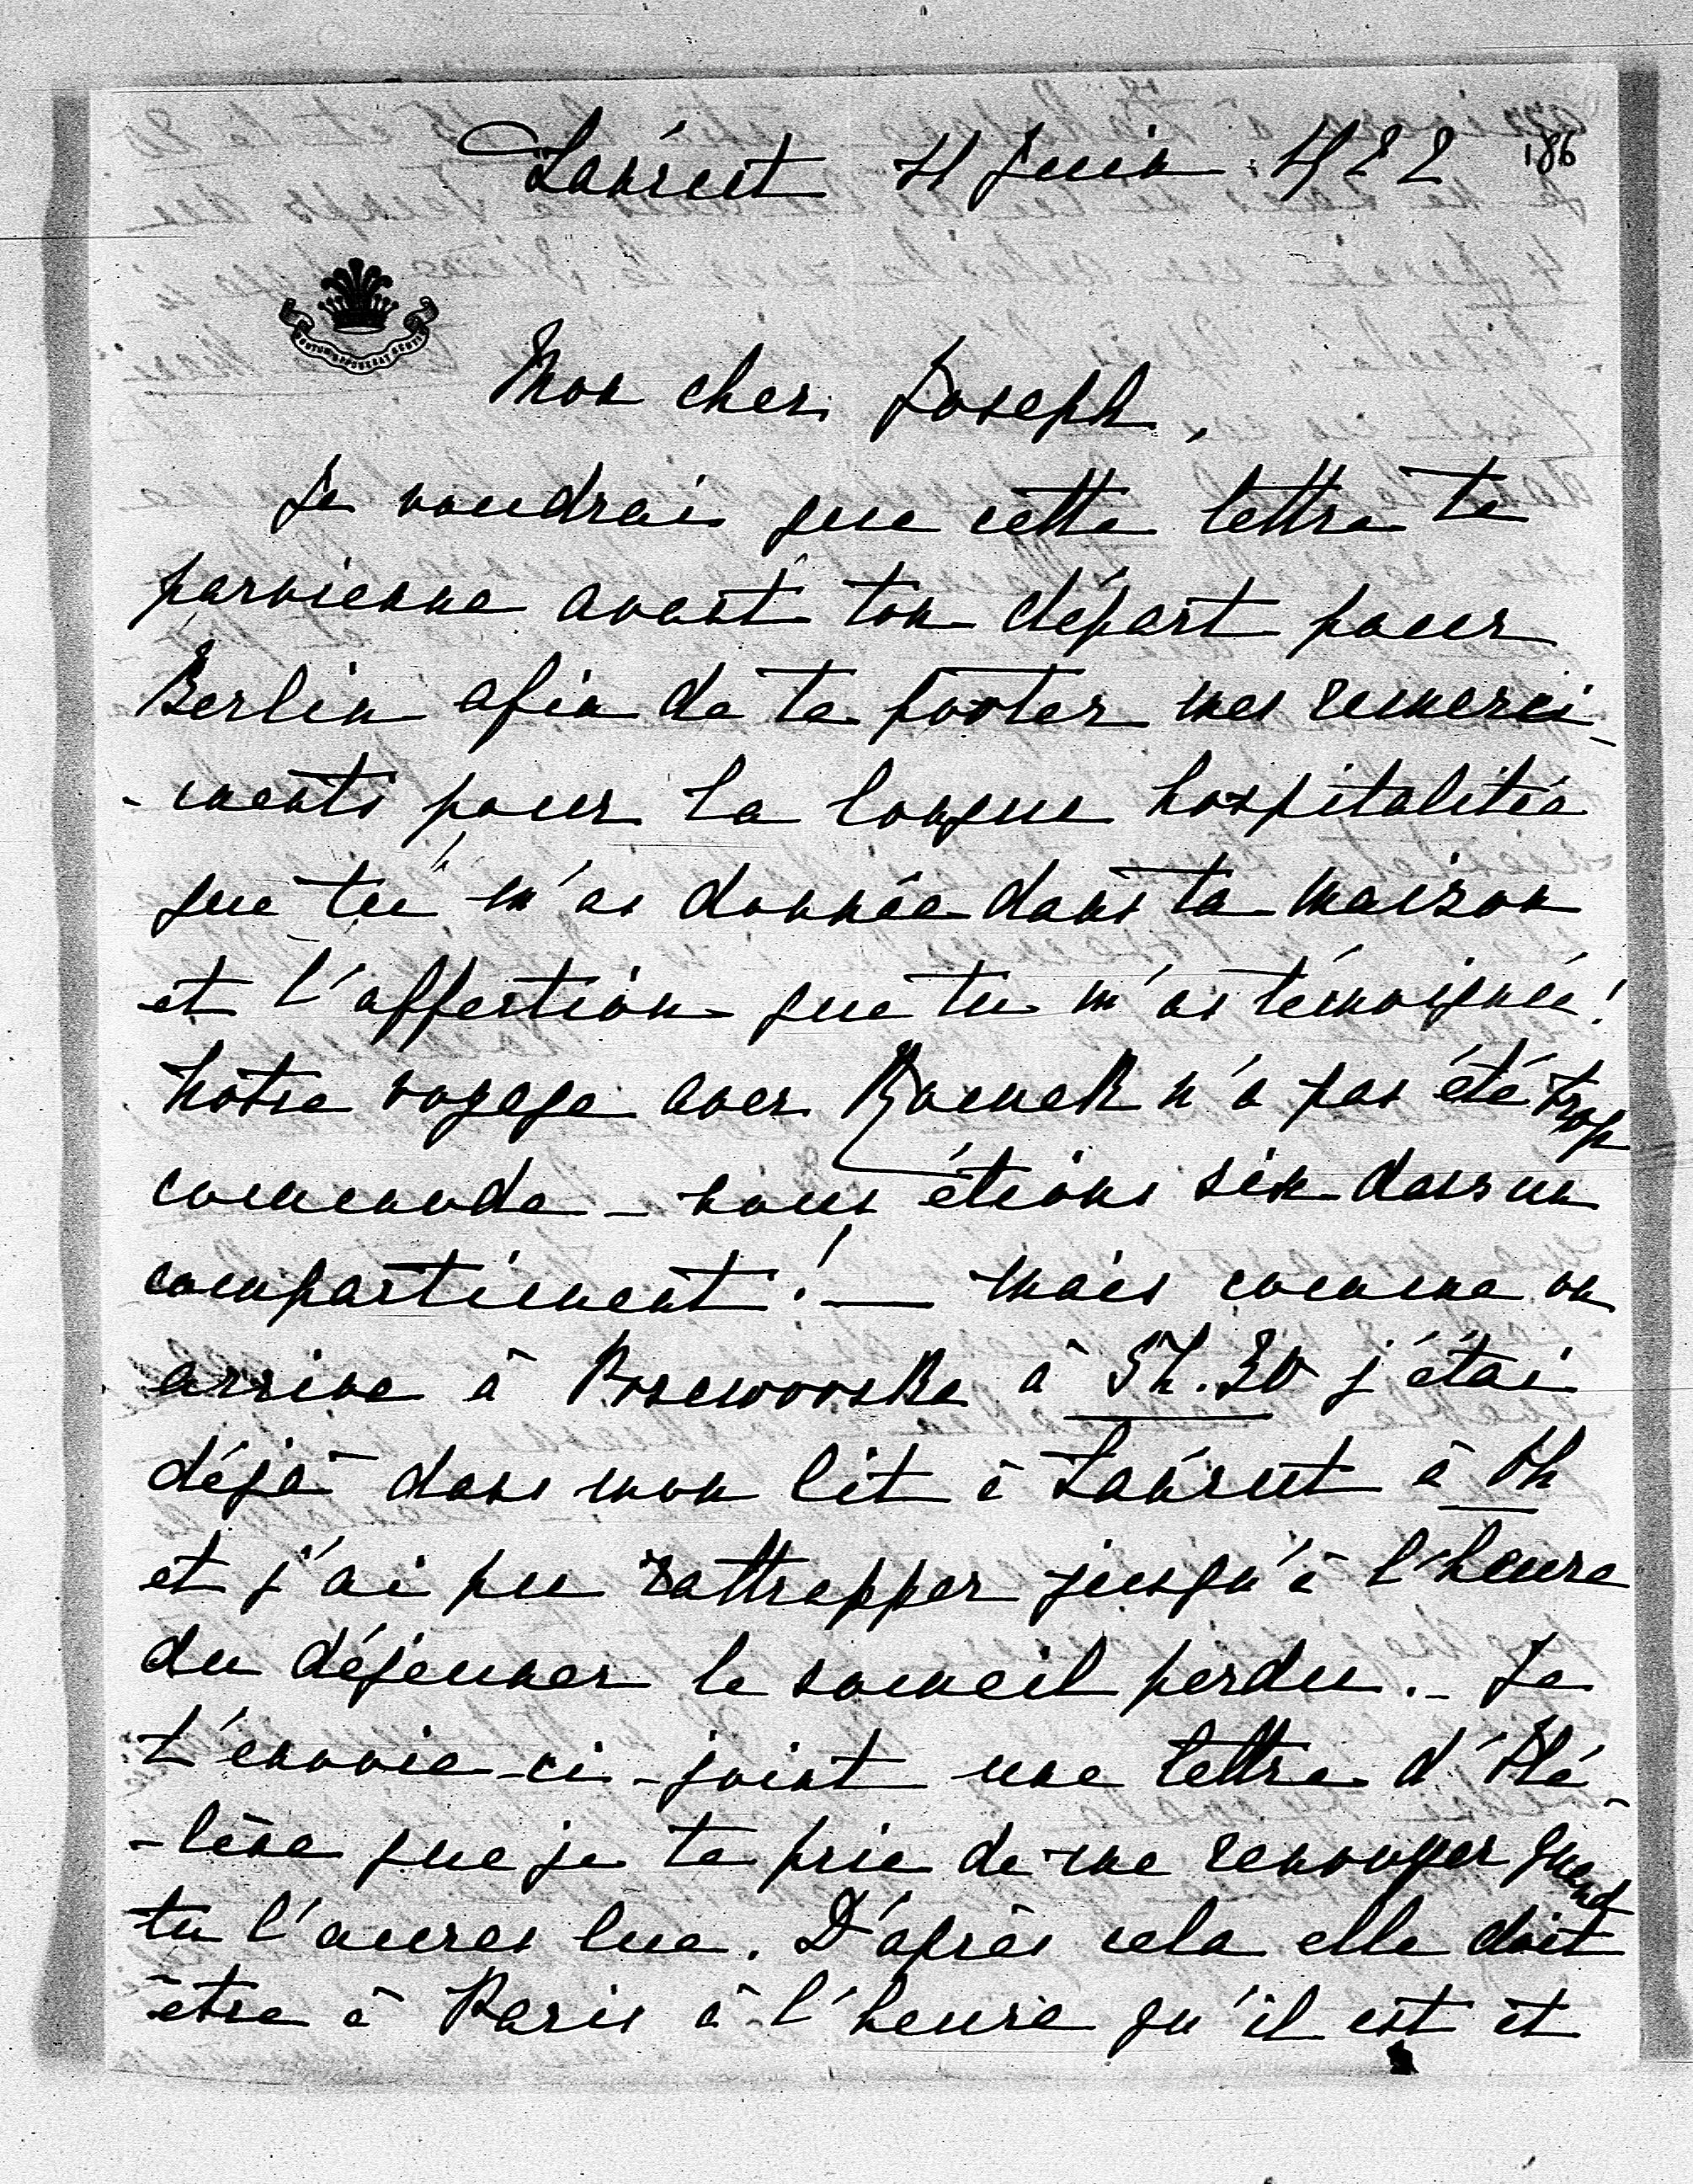 Łańcut 4 Juin 1922
186
Mon cher Joseph,
Je voudrais que cette lettre te
parvienne avant ton départ pour
Berlin afin de te porter mes remerci-
-ments pour la longue hospitalitée
que tu m'as donnée dans ta maison
et l'affection que tu m'as témoignée!
Notre voyage avec n'a pas été trop
commode - nous étions six dans un
compartiment! — Mais comme on
arrive à à 5h.30 j'étai
déjà dans mon lit à Łańcut à
et j'ai pu rattrapper jusqu'à l'heure
du déjeuner le someil perdu. - Je
t'envoie-ci-joint une lettre d'Hé-
-lène que je te prie de me renvoyer quand
tu l'auras lue. D'après cela elle doit
être à Paris à l'heure qu'il est et